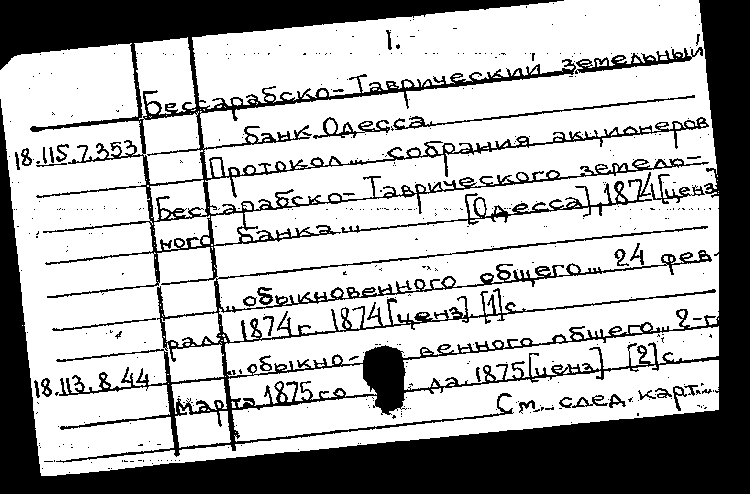 I.
Бессарабско-Таврический земельный
банк. Одесса.
18.115.7.353
Протокол... собрания акционеров
Бессарабско-Таврического земель-
ного банка... [Одесса], 1874 [ценз]
...обыкновенного общего... 24 фев-
раля 1874 г. 1874 [ценз]. [1] с.
...обыкно- венного общего... 2-г
18.113.8.44
марта 1875 го да. 1875 [ценз]. [2] с.
См. след. карт.